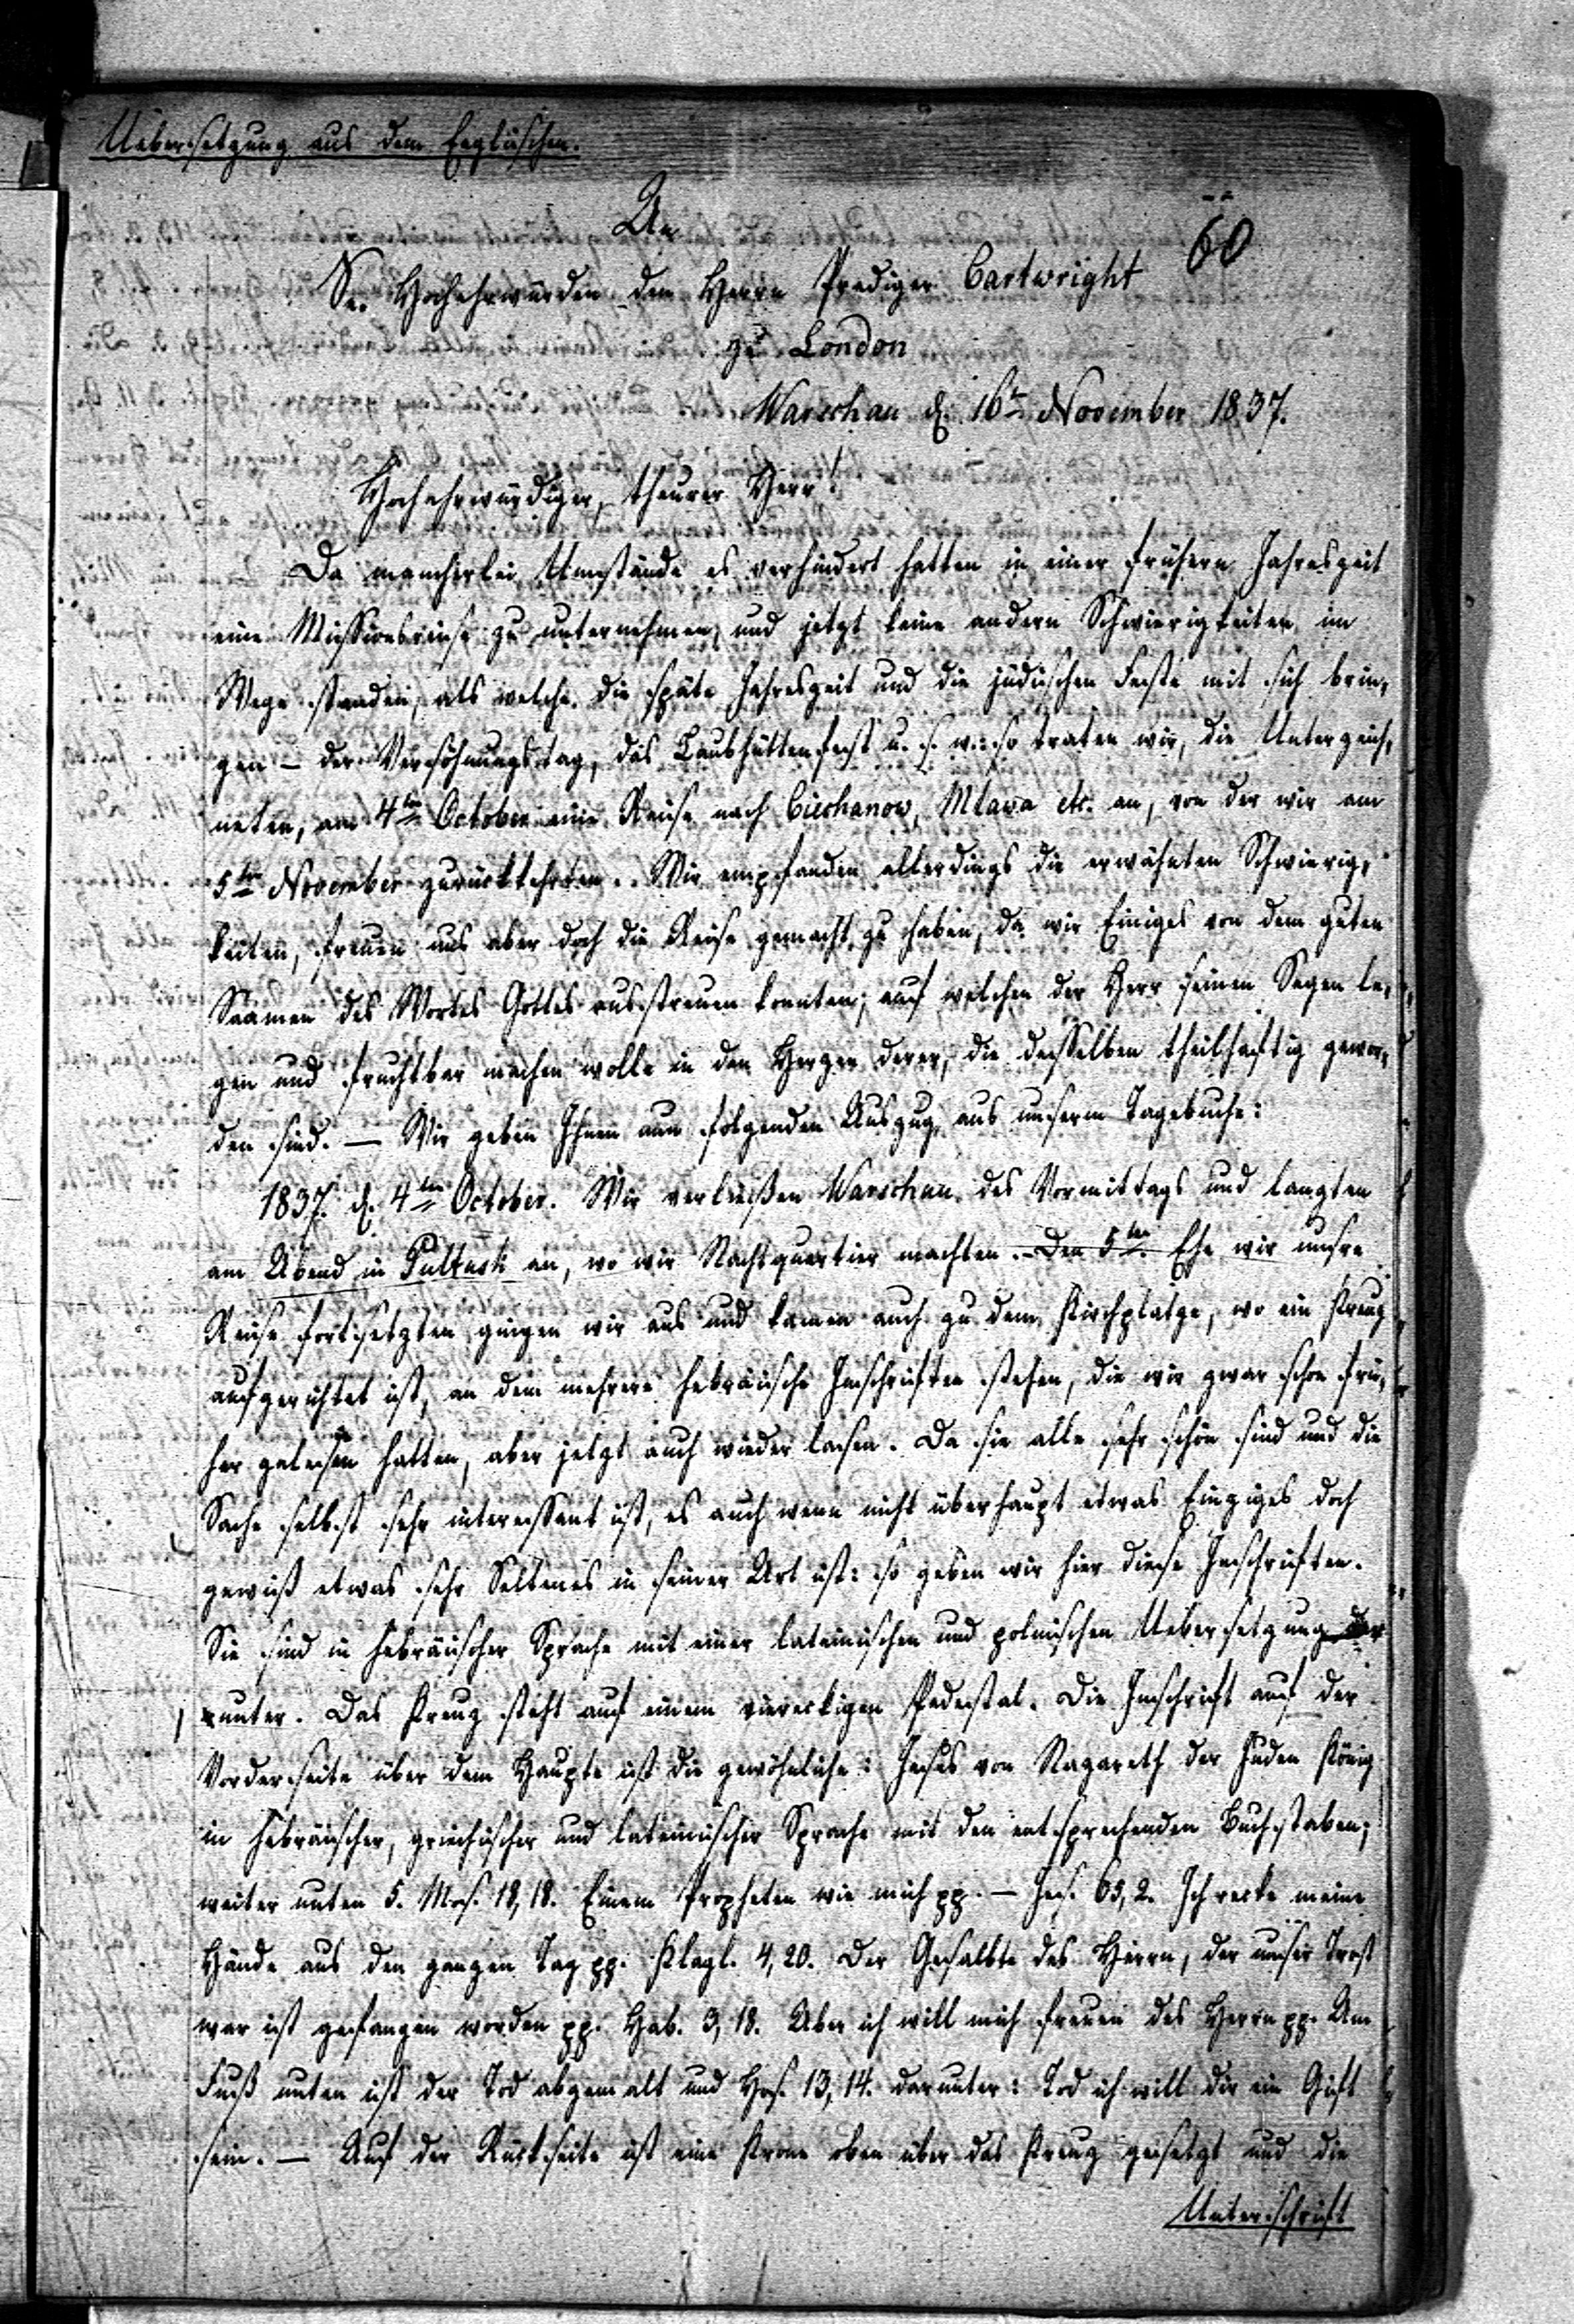 Uebersetzung aus dem Englischen.
An
60
Sr. Hochehrwürden dem Herrn Prediger Cartwright
zu London
Warschau d. 16t. November 1837.
Hochehrwürdiger, theurer Herr!
Da mancherlei Umstände es verhindert hatten in einer frühern Jahreszeit
eine Missionsreise zu unternehmen, und jetzt keine andern Schwierigkeiten im
Wege standen, als welche die späte Jahreszeit und die jüdischen Feste mit sich brin-
gen – der Versöhnungstag, das Laubhüttenfest u. s. w.: so traten wir, die Unterzeich-
neten, am 4ten October eine Reise nach Ciechanow, Mlawa etc. an, von der wir am
5ten November zurückkehrten. Wir empfanden allerdings die erwähnten Schwierig-
keiten, freuen uns aber doch die Reise gemacht zu haben, da wir Einiges von dem guten
Saamen des Wortes Gottes ausstreuen konnten, auf welchen der Herr seinen Segen le-
gen und fruchtbar machen wolle in den Herzen derer, die desselben theilhaftig gewor-
den sind. — Wir geben Ihnen nun folgenden Auszug aus unserm Tagebuche:
1837. d. 4ten October. Wir verließen Warschau des Vormittags und langten
am Abend in Pultusk an, wo wir Nachtquartier machten. – Den 5ten. Ehe wir unsre
Reise fortsetzten gingen wir aus und kamen auch zu dem Kirchplatze, wo ein Kreuz
aufgerichtet ist, an dem mehrere hebräische Inschriften stehen, die wir zwar schon frü-
her gelesen hatten, aber jetzt auch wieder lasen. Da sie alle sehr schön sind und die
Sache selbst sehr interessant ist, es auch wenn nicht überhaupt etwas Einziges doch
gewiß etwas sehr Seltenes in seiner Art ist: so geben wir hier diese Inschriften.
Sie sind in hebräischer Sprache mit einer lateinischen und polnischen Uebersetzung dar-
unter. Das Kreuz steht auf einem viereckigen Pedestal. Die Inschrift auf der
Vorderseite über dem Haupte ist die gewöhnliche: Jesus von Nazareth der Juden König
in hebräischer, griechischer und lateinischer Sprache mit den entsprechenden Buchstaben;
weiter unten 5. Mos. 18, 18. Einem Propheten wie mich pp. — Jes. 65, 2. Ich recke meine
Hände aus den ganzen Tag pp. Klagl. 4, 20. Der Gesalbte des Herrn, der unser Trost
war ist gefangen worden pp. Hab. 3, 18. Aber ich will mich freuen des Herrn pp. Am
Fuß unten ist der Tod abgemalt und Hos. 13, 14. darunter: Tod ich will dir ein Gift
sein. — Auf der Rückseite ist eine Krone oben über das Kreuz gesetzt und die
Unterschrift